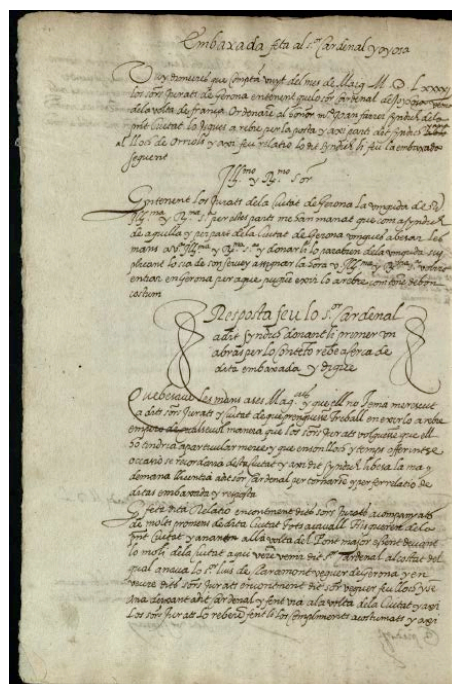 Embaxada feta al s.or Cardenal yoyosa
Vuy dimecres que comptam vuyt del mes de Maig M. D. LXXXX
los s.ors Jurats de Gerona entenent quelo s.or Cardenal de Joyosa
dela volta de frança Ordenaren al honor m.o Joan
pnt Ciutat lo digues a rebre per la posta y axi parti dit syndich
al lloch de Orriols y axi feu relatio lo dit syndich li feu la embaxada
seguent
Ill.mo y R.mo S.or
Entenent los Jurats dela Ciutat de Gerona la vinguda de V.
Ill.ma y R.ma S. per estes parts me han manat que com a syndich
de aquella y per part dela Ciutat de Gerona vingues a besar les
mans a V. Ill.ma y R.ma S. y donarli lo parabien dela vinguda sup
plicant lo sia de son servey assignar la hora V. Ill.ma y R.ma S. volra
entrar en Gerona per a que pugan exir lo a rebre com tenen de bon
costum
Resposta feu lo s.or Cardenal
a dit syndich donant li primer un
abras per lo contento rebe a serca de
dita embaxada y digue
Que besave les mans a ses Mag.cies y que ell no tenia merescut
a dits s.ors Jurats y Ciutat de que prenguessen treball en exirlo a rebre
empero de qualsevol manera que los s.ors Jurats volguessen que ell
ho tindria a particular merce y que en son lloch y temps offerintse
occasio se recordaria de dita Ciutat y axi dit syndich li besa la ma y
demana llicentia a dit s.or Cardenal per tornarse y per fer relatio de
ditas embaxada y resposta
E feta dita Relatio encontinent dits s.ors Jurats acompanyats
de molts promens de dita Ciutat tots a cavall isqueren dela
pnt Ciutat y anaren alla volta del Pont major e sent devant
lo moli dela Ciutat aqui veren venir dit s.or Cardenal al costat del
qual anava lo s.or lluis de Claramont veguer de Gerona y en
veure dits s.ors Jurats encontinent dit s.or veguer feu lloch y se
ana dexant a dit Cardenal y fent via ala volta dela Ciutat y axi
Los s.ors Jurats lo reberen fent li los Compliments acostumats y axi